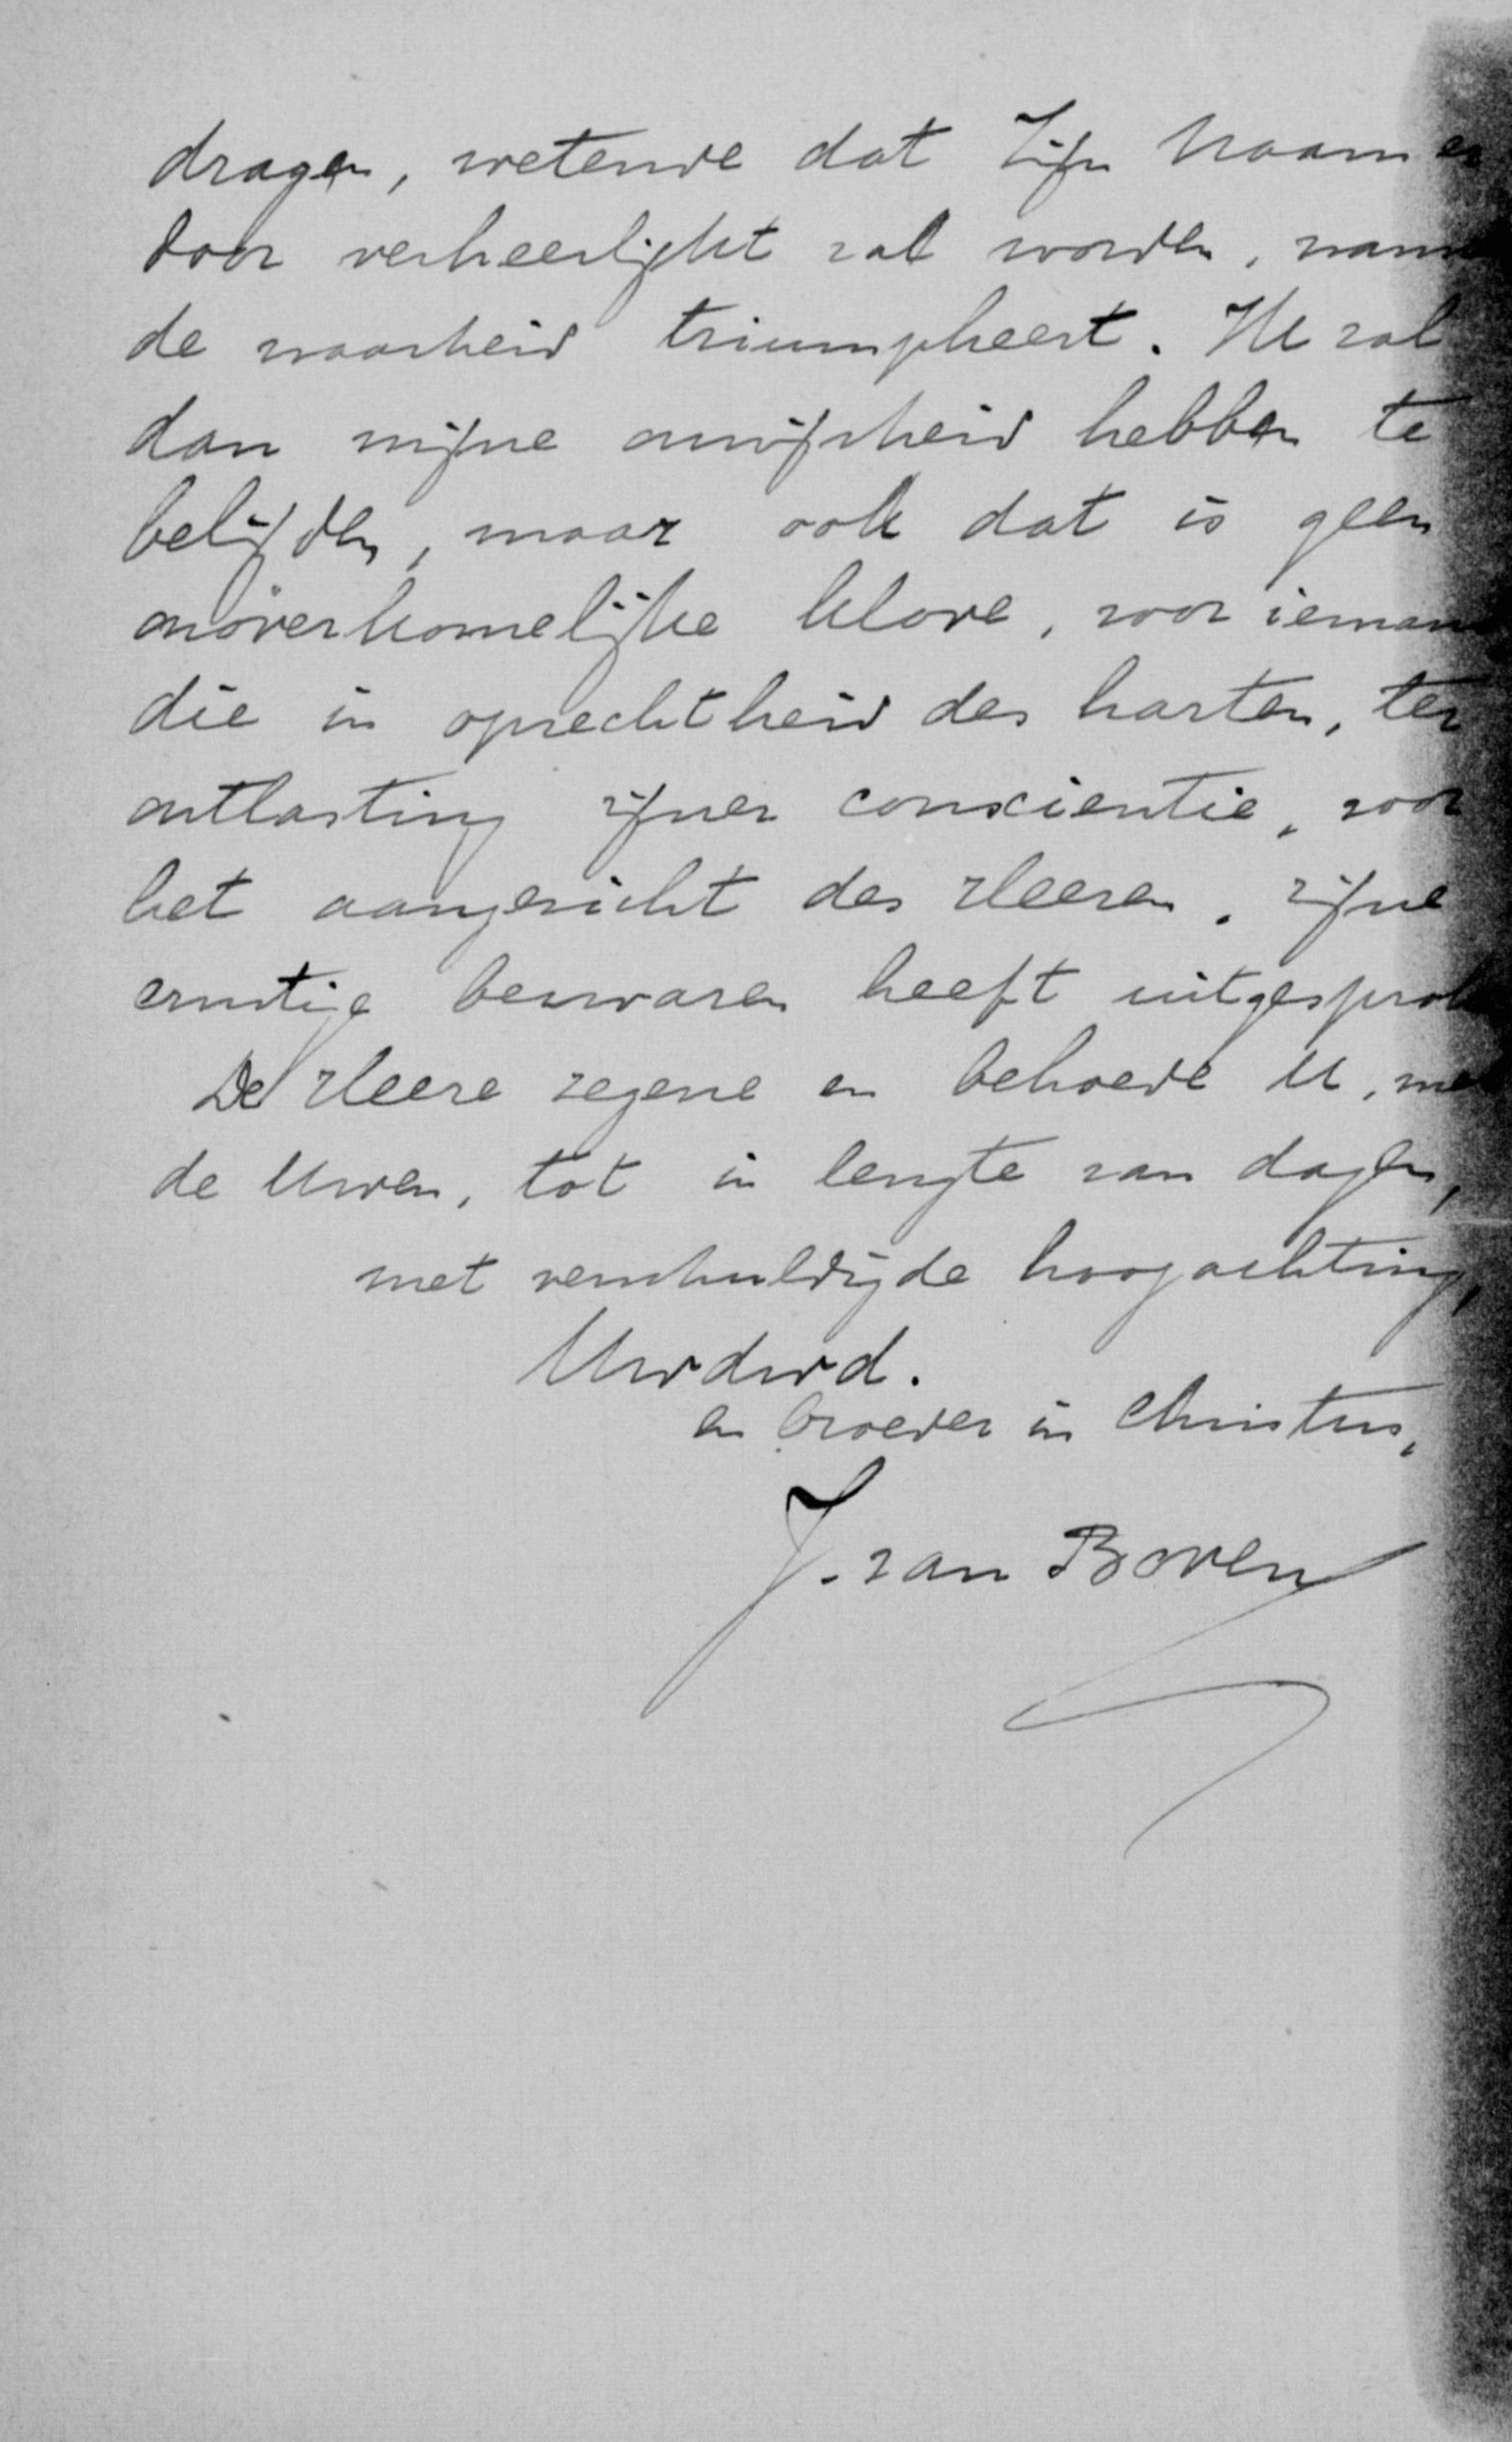 dragen, wetende dat Zijn Naam er
door verheerlijkt zal worden, wanneer
de waarheid triumpheert. Ik zal
dan mijne onwijsheid hebben te
belijden, maar ook dat is geen
onoverkomelijke klove, voor iemand
die in oprechtheid des harten, ter
ontlasting zijner conscientie, voor
het aangezicht des Heeren, zijne
ernstige bezwaren heeft uitgesprok
De Heere zegene en behoede U, met
de Uwen, tot in lengte van dagen,
met verschuldigde hoogachting,
Uwdwd.
en broeder in Christus,
J. van Boven